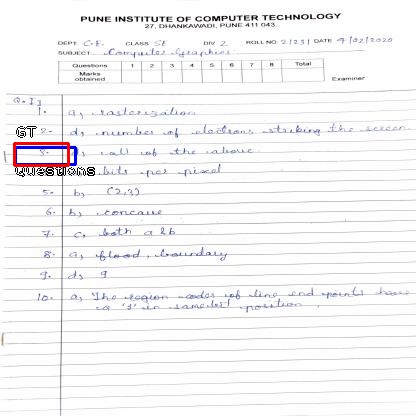 PUNE INSTITUTE OF COMPUTER TECHNOLOGY
27, DHANKAWADI, PUNE 411 043.
DEPT. C.E. CLASS SE DIV 2 ROLL NO. 21231 DATE 4/02/2020
SUBJECT Computer Graphics
Questions 1 2 3 4 5 6 7 8 Total
Marks obtained
Examiner
Q.1]
1. a, rasterization
GT 2. d, number of electrons striking the screen
3. d, all of the above.
Questions bits per pixel
5. b, (2,3)
6. b, concave
7. c, both a & b
8. a, flood, boundary
9. d, 9
10. a, The region codes of line end points have
a '1' in same bit position.